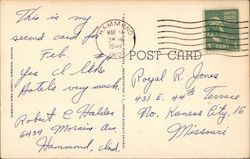 This is my
second card for
Feb.
Yes I like
Hotels very much.
Robert C Halder
6434 Morain Ave
Hammond, Ind.
HAMMOND
MAR
IND.
1 CENT
POST CARD
Royal R. Jones
431 E. 44th Terrace
No. Kansas City, 16
Missouri